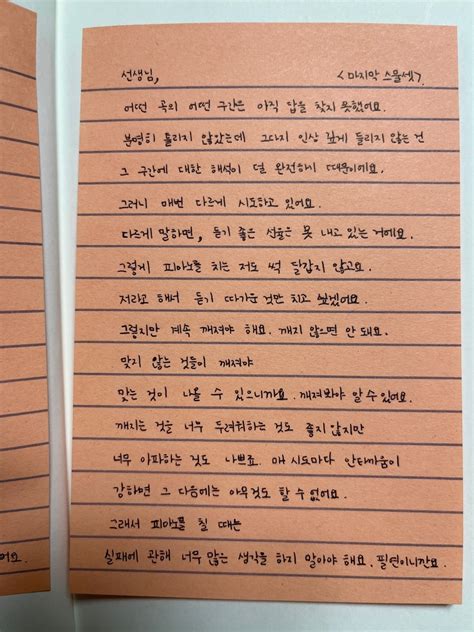 선생님,
< 마지막 스물셋 >
어떤 곡의 어떤 구간은 아직 답을 찾지 못했어요.
분명히 틀리지 않았는데 그다지 인상 깊게 들리지 않는 건
그 구간에 대한 해석이 덜 완전하기 때문이에요.
그러니 매번 다르게 시도하고 있어요.
다르게 말하면, 듣기 좋은 선율은 못 내고 있는 거예요.
그렇게 피아노를 치는 저도 썩 달갑지 않고요.
저라고 해서 듣기 따가운 것만 치고 싶겠어요.
그렇지만 계속 깨져야 해요. 깨지 않으면 안 돼요.
맞지 않는 것들이 깨져야
맞는 것이 나올 수 있으니까요. 깨져봐야 알 수 있어요.
깨지는 것을 너무 두려워하는 것도 좋지 않지만
너무 아파하는 것도 나쁘죠. 매 시도마다 안타까움이
강하면 그 다음에는 아무것도 할 수 없어요.
그래서 피아노를 칠 때는
실패에 관해 너무 많은 생각을 하지 말아야 해요. 필연이니깐요.
어요.